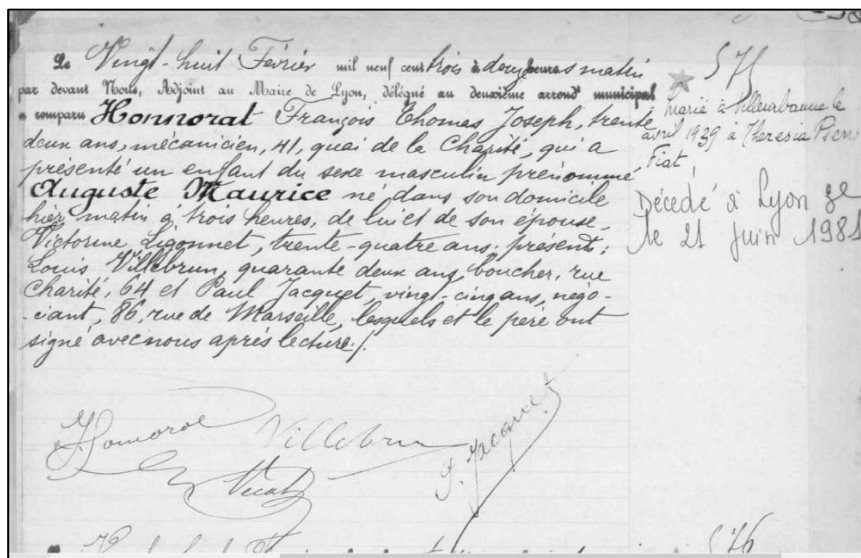 Le Vingt-huit Février mil neuf cent trois à douze heures matin
par devant Nous, Adjoint au Maire de Lyon, délégué au deuxième arrond municipal
a comparu Honnorat François Thomas Joseph, trente
deux ans, mécanicien, 41, quai de la Charité, qui a
présenté un enfant du sexe masculin prénommé
Auguste Maurice né dans son domicile
hier matin à trois heures, de lui et de son épouse
Victorine Ligonnet, trente-quatre ans; présent:
Louis Villebrun, quarante deux ans, boucher, rue
Charité, 64 et Paul Jacquet, vingt-cinq ans, négo-
-ciant, 86, rue de Marseille, lesquels et le père ont
signé avec nous après lecture./.
575
Marié à Villeurbanne le
avril 1929 à Theresia
Fiat
Décedé à Lyon 3e
le 21 juin 1981
Honnorat Villebrun P. Jacquet
576